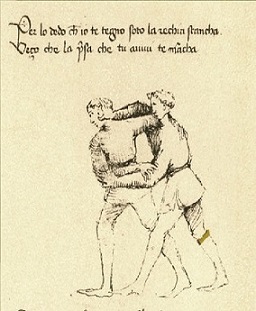 Per lo dedo ch'io te tegno soto la rechia stancha
Vezo che la p̃sa che tu avivi te mãcha